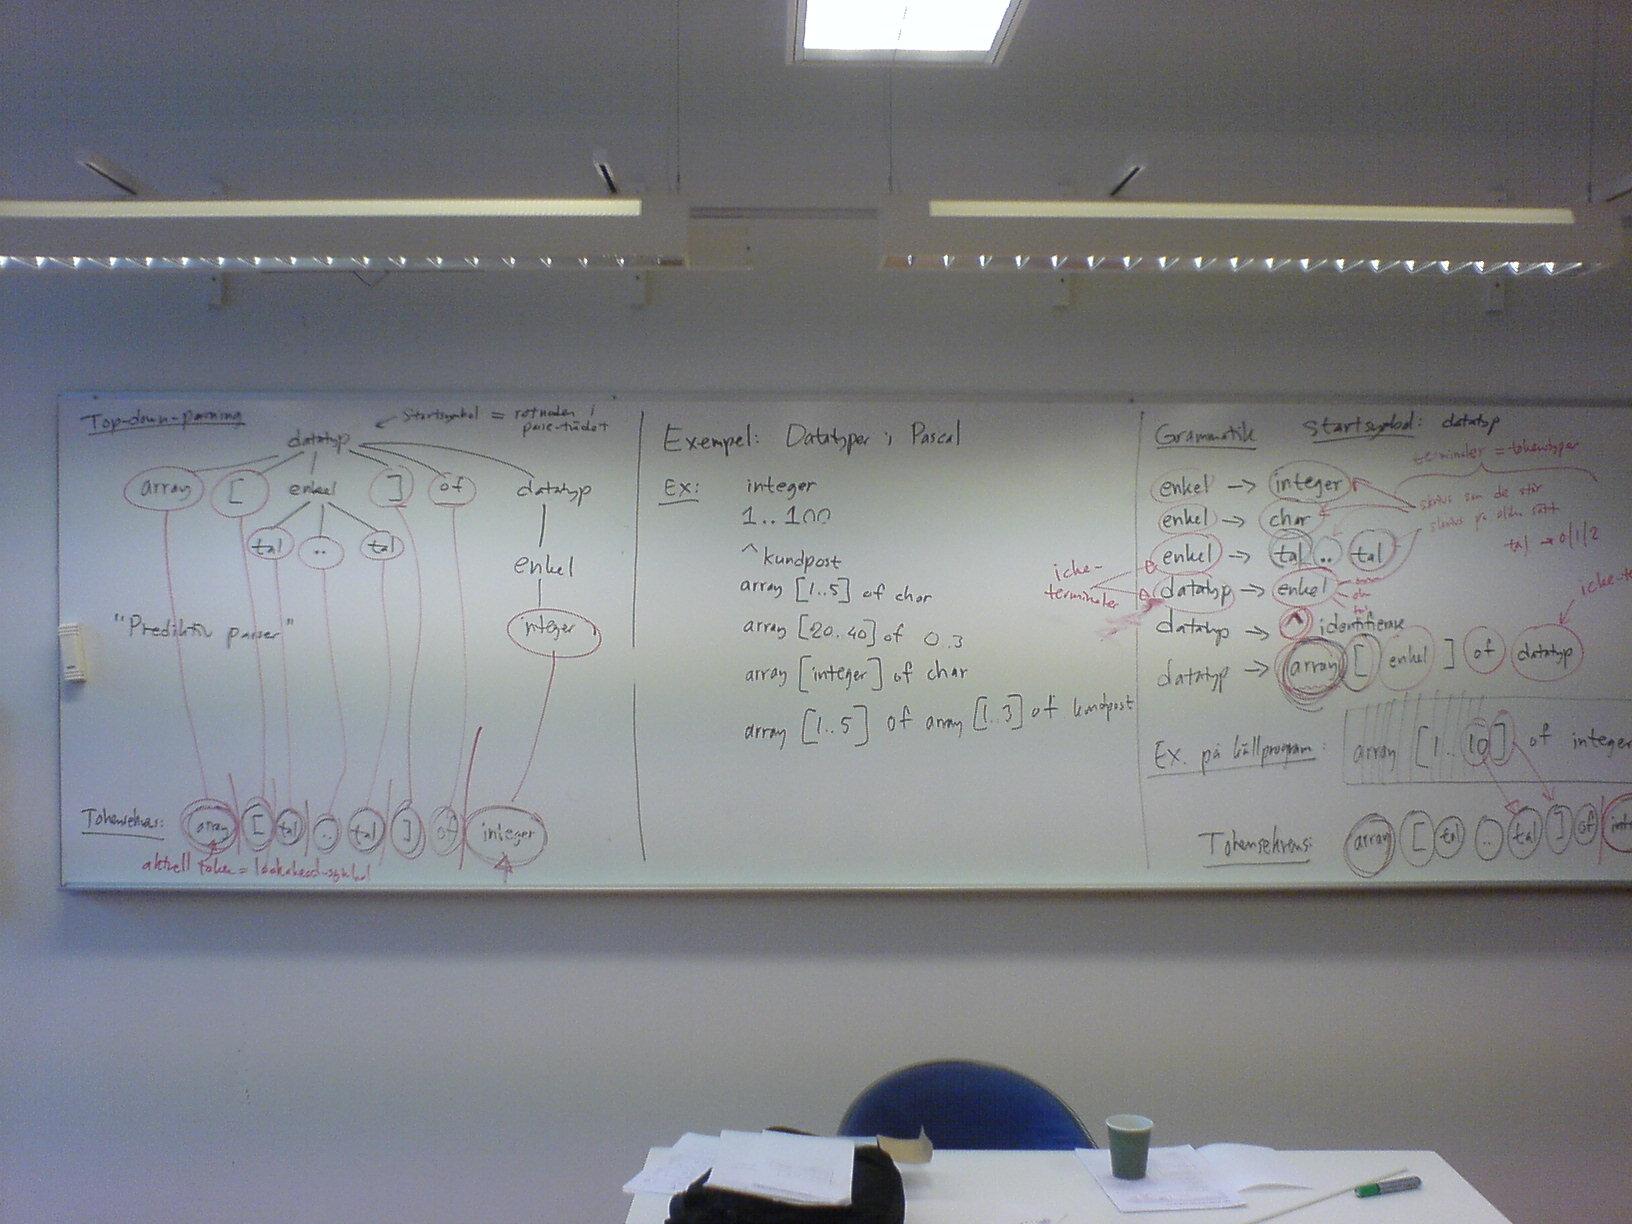 Top-down-parsning
Startsymbol = rotnoden i
parse-trädet
datatyp
array [ enkel ] of datatyp
tal .. tal
enkel
integer
"Prediktiv parser"
Tokensekvens: array [ tal .. tal ] of integer
aktuell token = lookahead-symbol
Exempel: Datatyper i Pascal
Ex: integer
1..100
^kundpost
array [1..5] of char
array [20..40] of 0..3
array [integer] of char
array [1..5] of array [1..3] of kundpost
Grammatik Startsymbol: datatyp
terminaler = tokentyper
enkel → integer
enkel → char
enkel → tal .. tal
datatyp → enkel
datatyp → ^ identifierare
datatyp → array [ enkel ] of datatyp
skrivs som de står
skrivs på olika sätt
tal → 0/1/2
icke-
terminaler
icke-te
Ex. på källprogram: array [1..10] of integer
Tokensekvens: array [ tal .. tal ] of inte